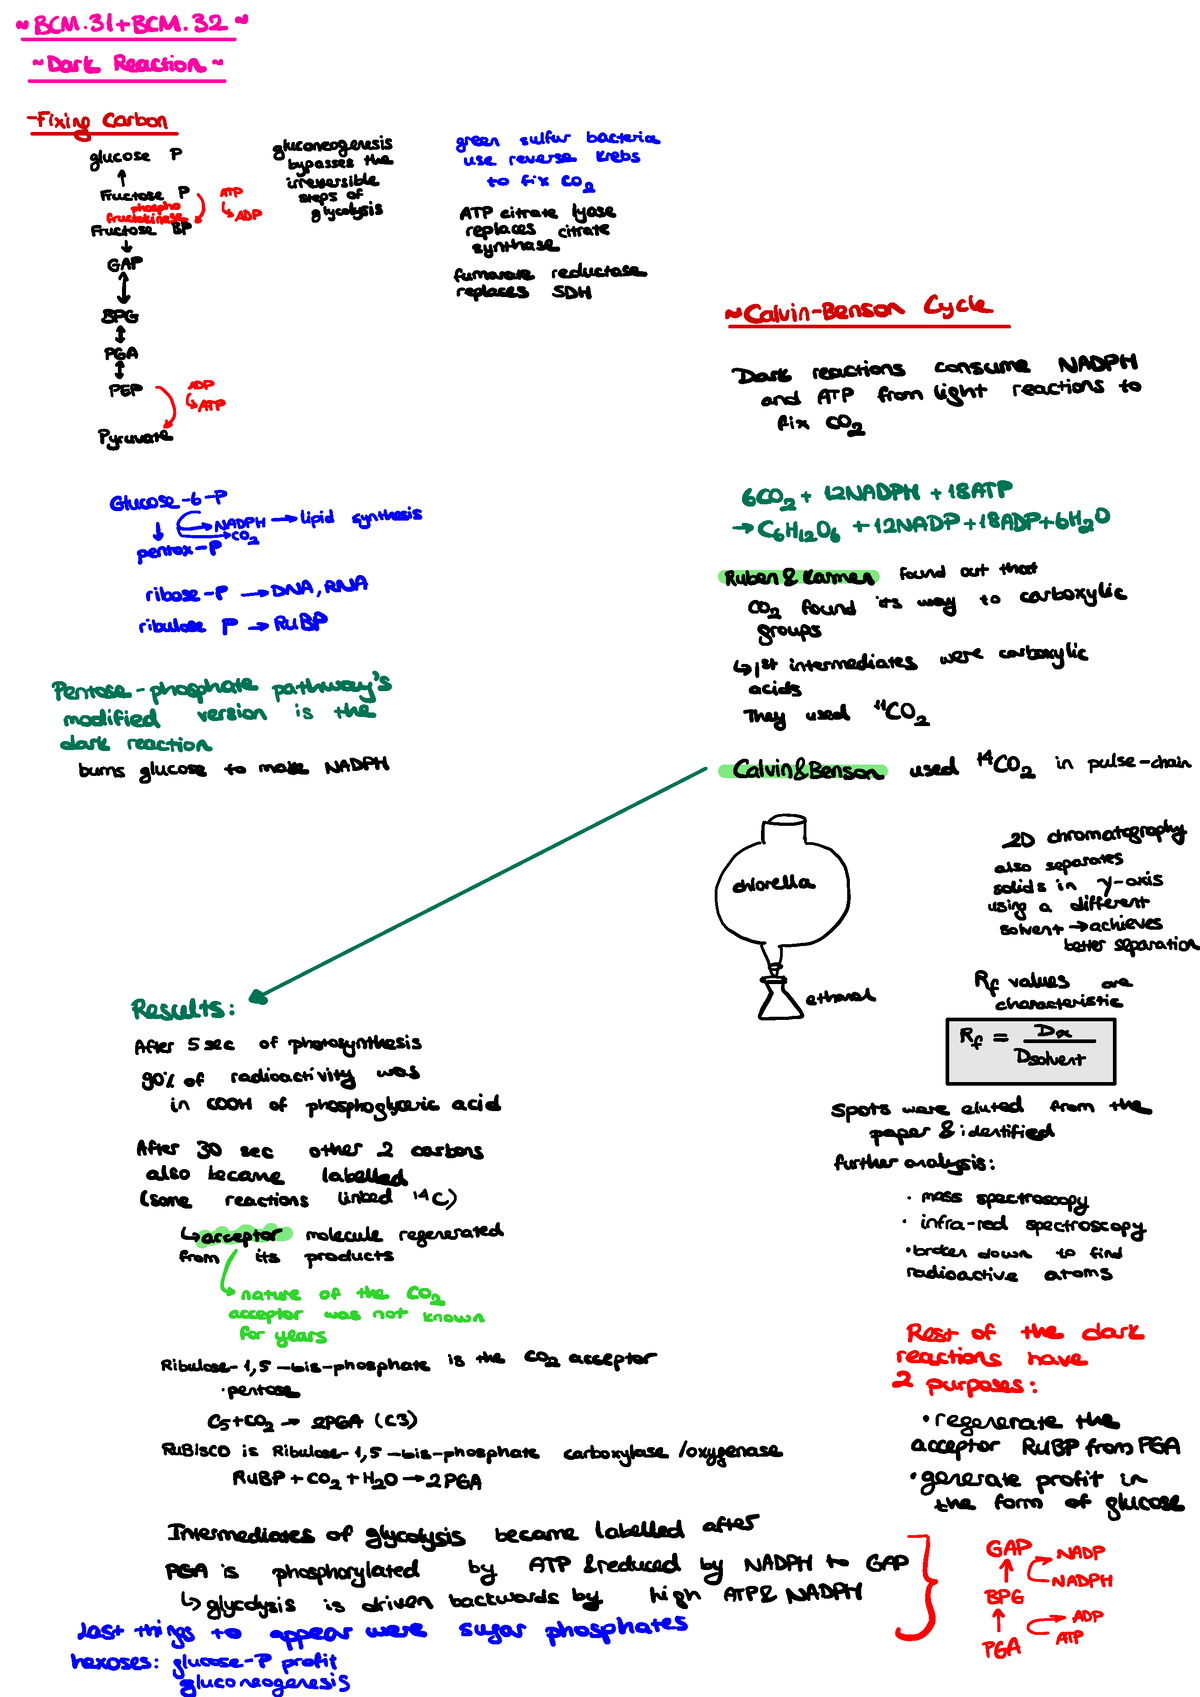 ~BCM.31+BCM.32~
~Dark Reaction~
-Fixing Carbon
glucose P
Fructose P
phospho
fructokinase
Fructose BP
ATP
↳ADP
GAP
BPG
PGA
PEP
ADP
↳ATP
Pyruvate
gluconeogenesis
bypasses the
irreversible
steps of
glycolysis
green sulfur bacteria
use reverse krebs
to fix CO2
ATP citrate lyase
replaces citrate
synthase
fumarate reductase
replaces SDH
Glucose-6-P
→NADPH→lipid synthesis
→CO2
pentox-P
ribose-P →DNA, RNA
ribulose P → RuBP
Pentose-phosphate pathway's
modified version is the
dark reaction
burns glucose to make NADPH
~Calvin-Benson Cycle
Dark reactions consume NADPH
and ATP from light reactions to
fix CO2
6CO2 + 12NADPH + 18ATP
→ C6H12O6 + 12NADP+18ADP+6H2O
Ruben & Kamen found out that
CO2 found its way to carboxylic
groups
↳1st intermediates were carboxylic
acids
They used 11CO2
Calvin&Benson used 14CO2 in pulse-chain
chlorella
ethanol
2D chromatography
also separates
solids in y-axis
using a different
solvent →achieves
better separation
Rf values are
characteristic
Rf = Dx
Dsolvent
Spots were eluted from the
paper & identified
further analysis:
· mass spectroscopy
· infra-red spectroscopy
· broken down to find
radioactive atoms
Results:
After 5 sec of photosynthesis
90% of radioactivity was
in COOH of phosphoglyceric acid
After 30 sec other 2 carbons
also became labelled
(some reactions linked 14C)
↳acceptor molecule regenerated
from its products
↳nature of the CO2
acceptor was not known
for years
Ribulose-1,5-bis-phosphate is the CO2 acceptor
·pentose
C5+CO2 → 2PGA (C3)
RuBisCO is Ribulose-1,5-bis-phosphate carboxylase /oxygenase
RuBP + CO2 + H2O → 2PGA
Rest of the dark
reactions have
2 purposes:
·regenerate the
acceptor RuBP from PGA
·generate profit in
the form of glucose
Intermediates of glycolysis became labelled after
PGA is phosphorylated by ATP &reduced by NADPH to GAP
↳glycolysis is driven backwards by high ATP& NADPH
last things to appear were sugar phosphates
hexoses: glucose-P profit
gluconeogenesis
GAP
NADP
NADPH
BPG
ADP
ATP
PGA